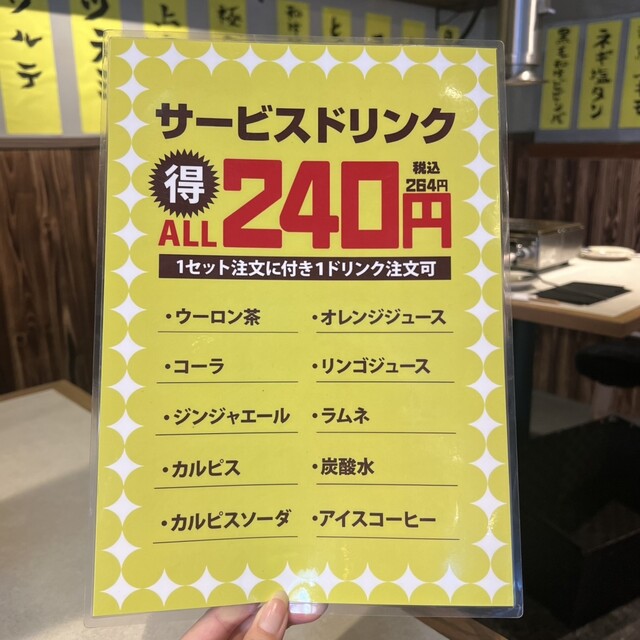 サービスドリンク
得
ALL 240円
税込
264円
1セット注文に付き1ドリンク注文可
・ウーロン茶
・オレンジジュース
・コーラ
・リンゴジュース
・ジンジャエール
・ラムネ
・カルピス
・炭酸水
・カルピスソーダ
・アイスコーヒー
ネギ塩タン